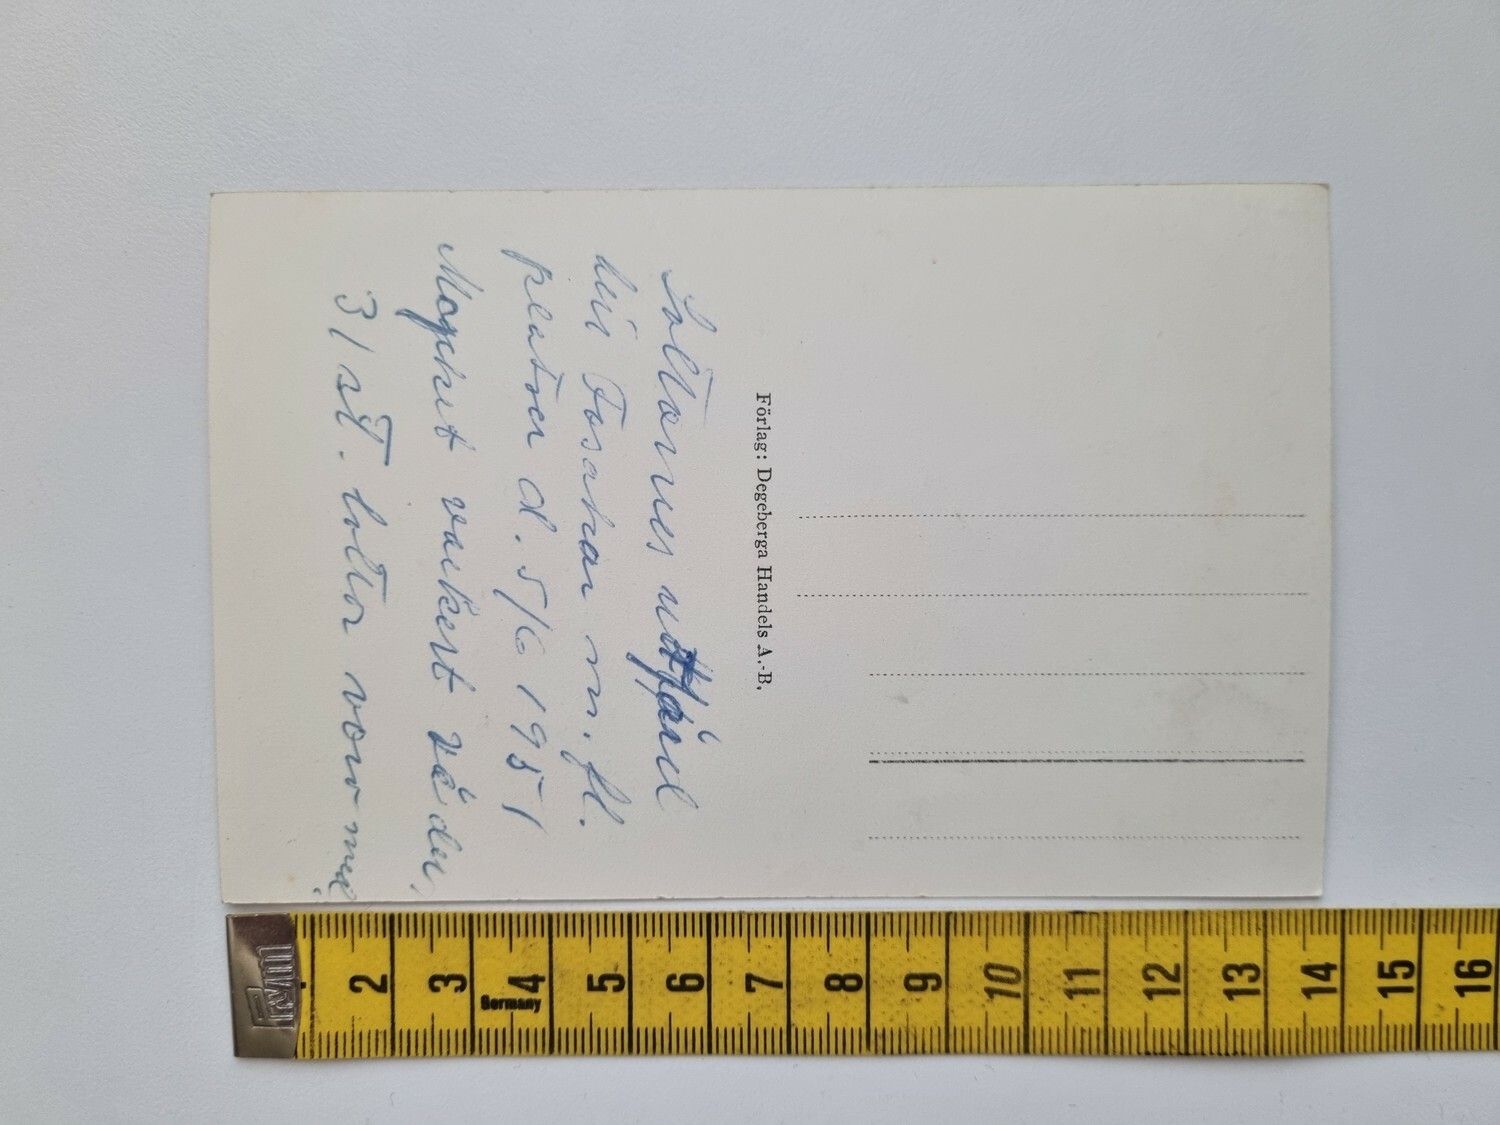 Lottornes utfärd
till Forsakar m. fl.
platser d. 5/6 1951
Mycket vackert väder,
31 st. lottor voro med
Förlag: Degeberga Handels A.-B.
2 3 4 5 6 7 8 9 10 11 12 13 14 15 16
Germany